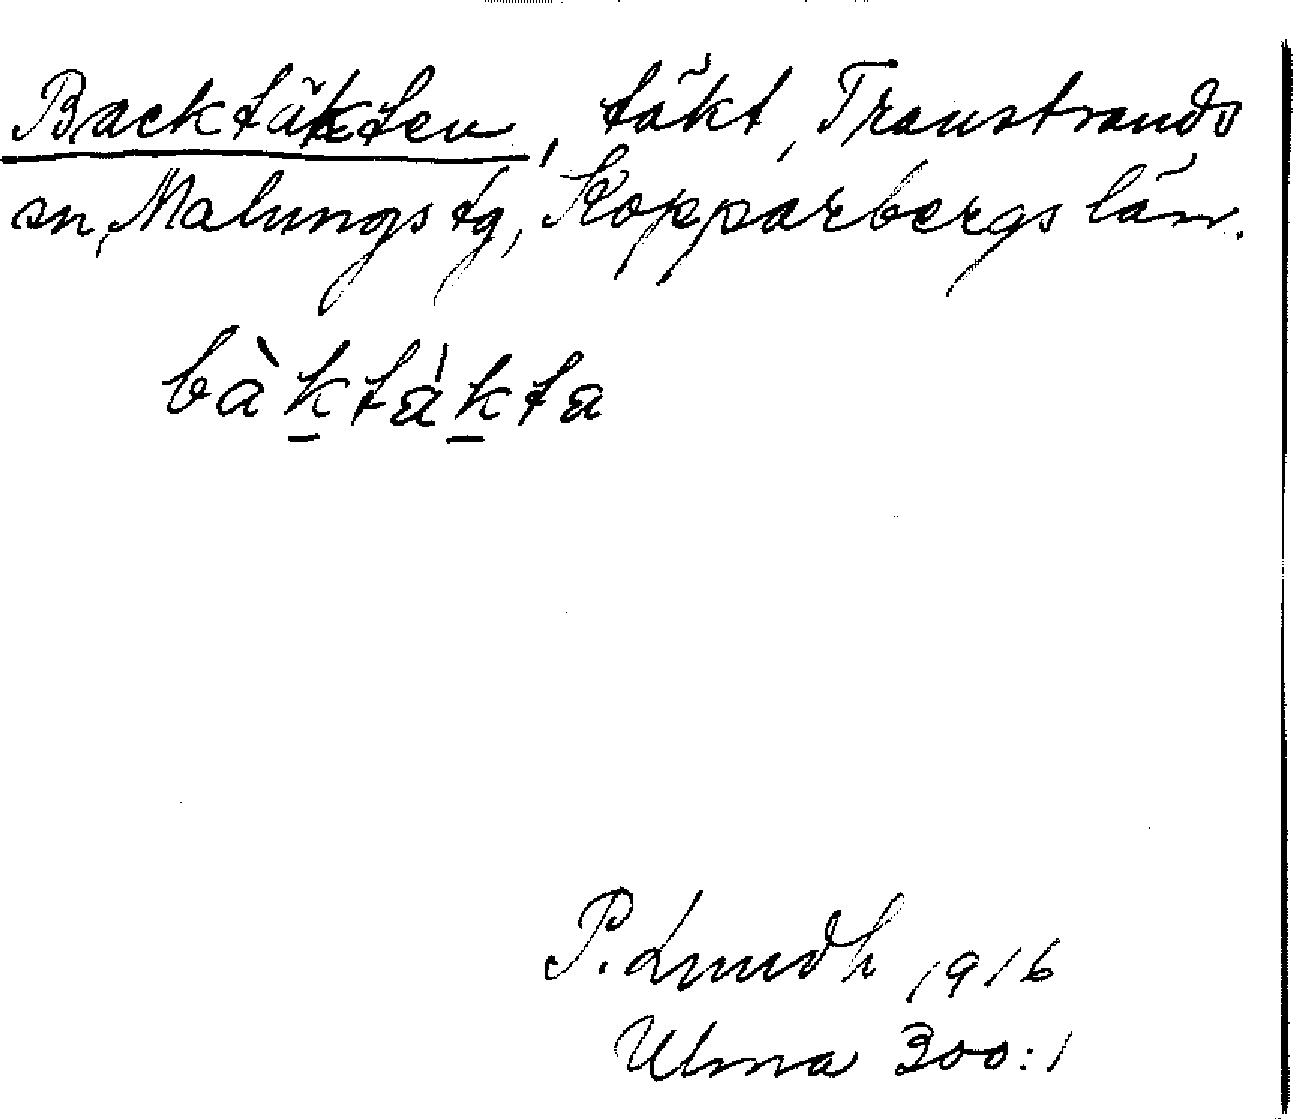 Backtäkten, täkt, Transtrands
sn, Malungs tg, Kopparbergs län.
bàktákta
P. Lundh 1916
Ulma 300:1